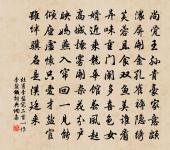 尚覺王孫貴豪家意頗
濃屏開金孔雀褥隱繡
芙蓉且食雙魚美誰看
異味重門闌多喜色女
婿近乘龍華館春風起
高城煙霧開雜花分戶
映嬌燕入帘回一見能
傾座虛懷只愛才鹽官
雖絆驥名是漢庭來
杜甫李監宅二首一作
李鹽鐵